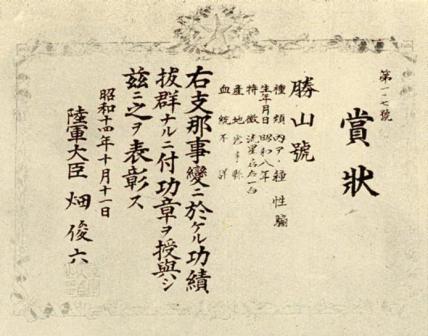 賞狀
勝山號
種類 内ア 種 性 騸
生年月日 昭和八年
特徴 流星
產地 岩手縣
血統不詳
右支那事變ニ於ケル功績
拔群ナルニ付功章ヲ授與シ
茲ニ之ヲ表彰ス
昭和十四年十月十一日
陸軍大臣 畑 俊六